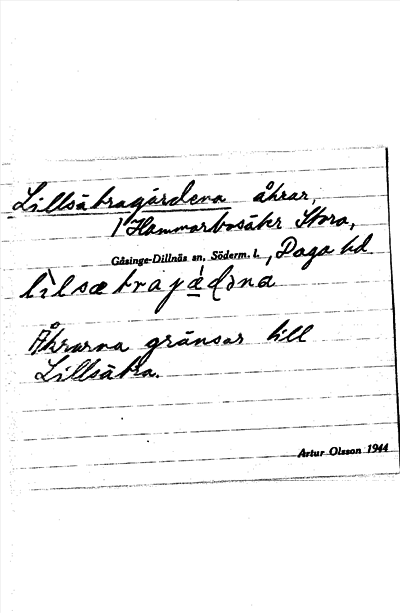 Lillsäbragårdena åkrar,
1 Hammarbosäter Stora,
Gåsinge-Dillnäs sn, Söderm. l., Daga hd
Åkrarna gränsar till
Lillsäbra.
Artur Olsson 1944